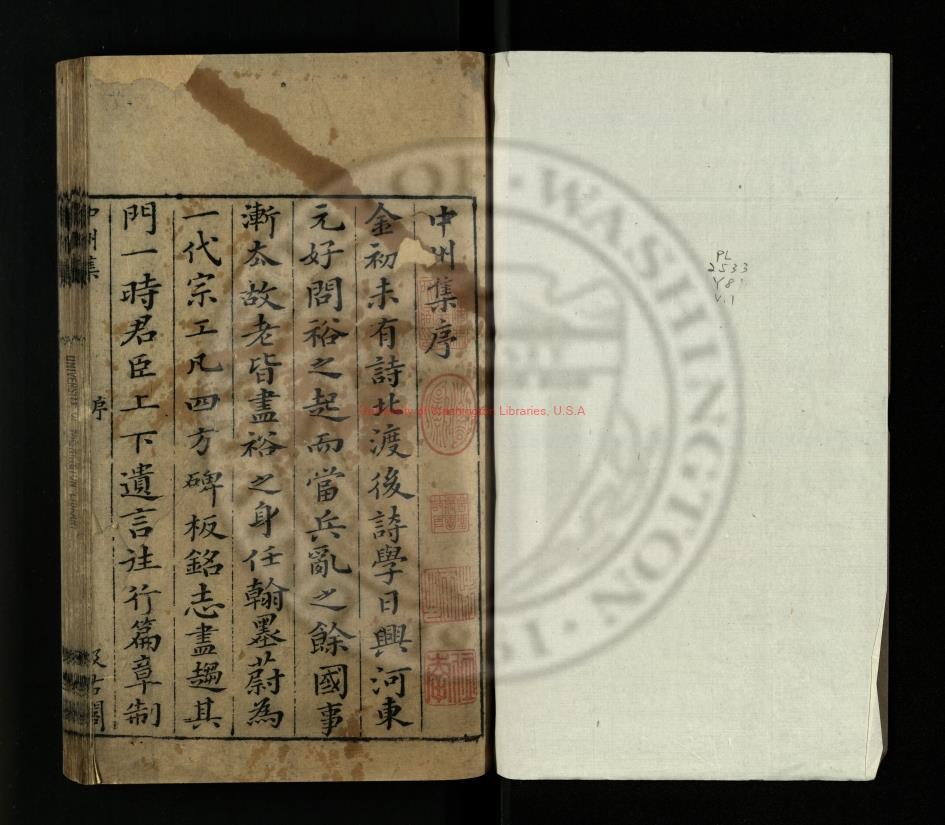 中州集序
金初未有詩北渡後詩學日興河東
元好問裕之起而當兵亂之餘國事
漸否故老皆盡裕之身任翰墨蔚為
一代宗工凡四方碑板銘志盡趨其
門一時君臣上下遺言往行篇章制
中州集
序
汲古閣
PL
2533
Y81
V.1
University of Washington Libraries, U.S.A
WASHINGTON